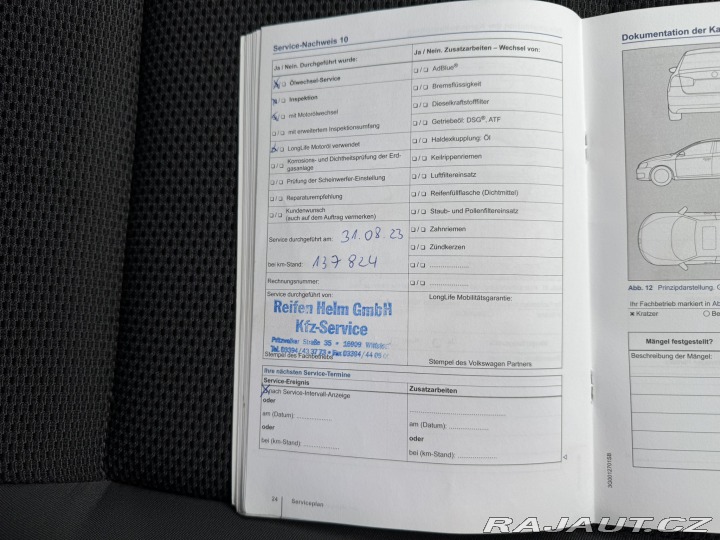 Service-Nachweis 10
Ja / Nein. Durchgeführt wurde:
Ölwechsel-Service
Inspektion
mit Motorölwechsel
mit erweitertem Inspektionsumfang
LongLife Motoröl verwendet
Korrosions- und Dichtheitsprüfung der Erd-
gasanlage
Prüfung der Scheinwerfer-Einstellung
Reparaturempfehlung
Kundenwunsch
(auch auf dem Auftrag vermerken)
Service durchgeführt am: 31.08.23
bei km-Stand: 137824
Rechnungsnummer:
Service durchgeführt von:
Reifen Helm GmbH
Kfz-Service
Pritzwalker Straße 35 • 16909
Tel. 03394/43 37 73 • Fax 03394/44
Stempel des Fachbetriebs
Ja / Nein. Zusatzarbeiten – Wechsel von:
AdBlue®
Bremsflüssigkeit
Dieselkraftstofffilter
Getriebeöl: DSG®, ATF
Haldexkupplung: Öl
Keilrippenriemen
Luftfiltereinsatz
Reifenfüllflasche (Dichtmittel)
Staub- und Pollenfiltereinsatz
Zahnriemen
Zündkerzen
LongLife Mobilitätsgarantie:
Stempel des Volkswagen Partners
Ihre nächsten Service-Termine
Service-Ereignis
nach Service-Intervall-Anzeige
oder
am (Datum):
oder
bei (km-Stand):
Zusatzarbeiten
am (Datum):
oder
bei (km-Stand):
24 Serviceplan
Dokumentation der Ka
Abb. 12 Prinzipdarstellung.
Ihr Fachbetrieb markiert in Ab
Kratzer
Be
Mängel festgestellt?
Beschreibung der Mängel:
3G0012701SB
RAJAUT.CZ